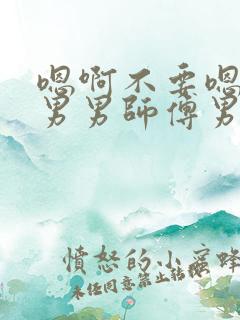 嗯啊不要嗯
男男師傅男
憤怒的小蜜蜂
未任同意禁止轉載